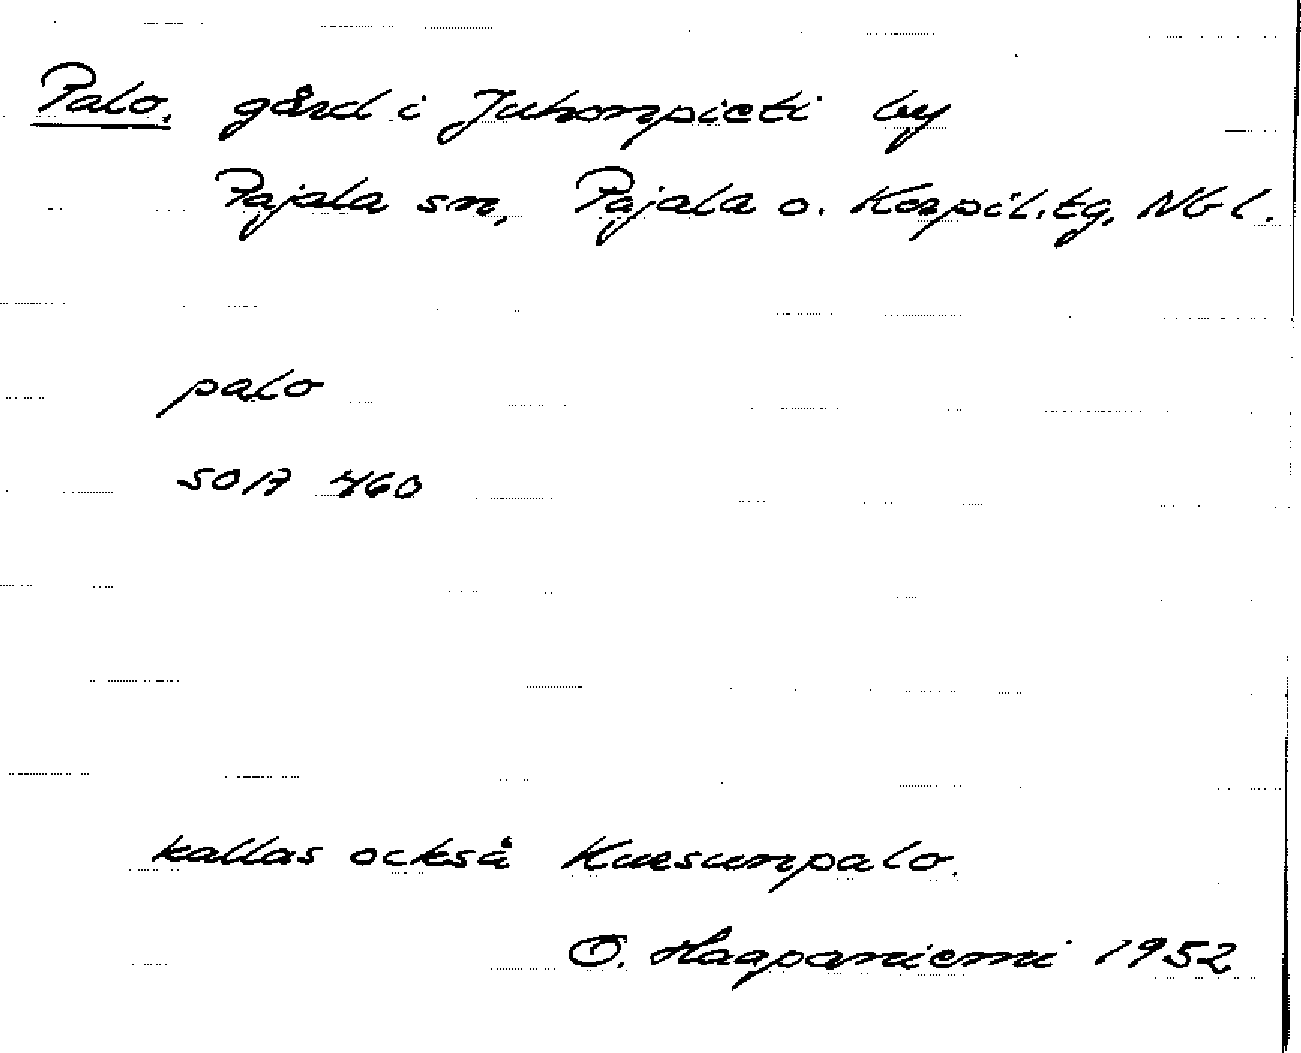 Palo, gård i Juhonpieti by
Pajala sn, Pajala o. Korpil.tg, Nbl.
palo
SOA 460
kallas också Kuusunpalo.
O. Haapaniemi 1952